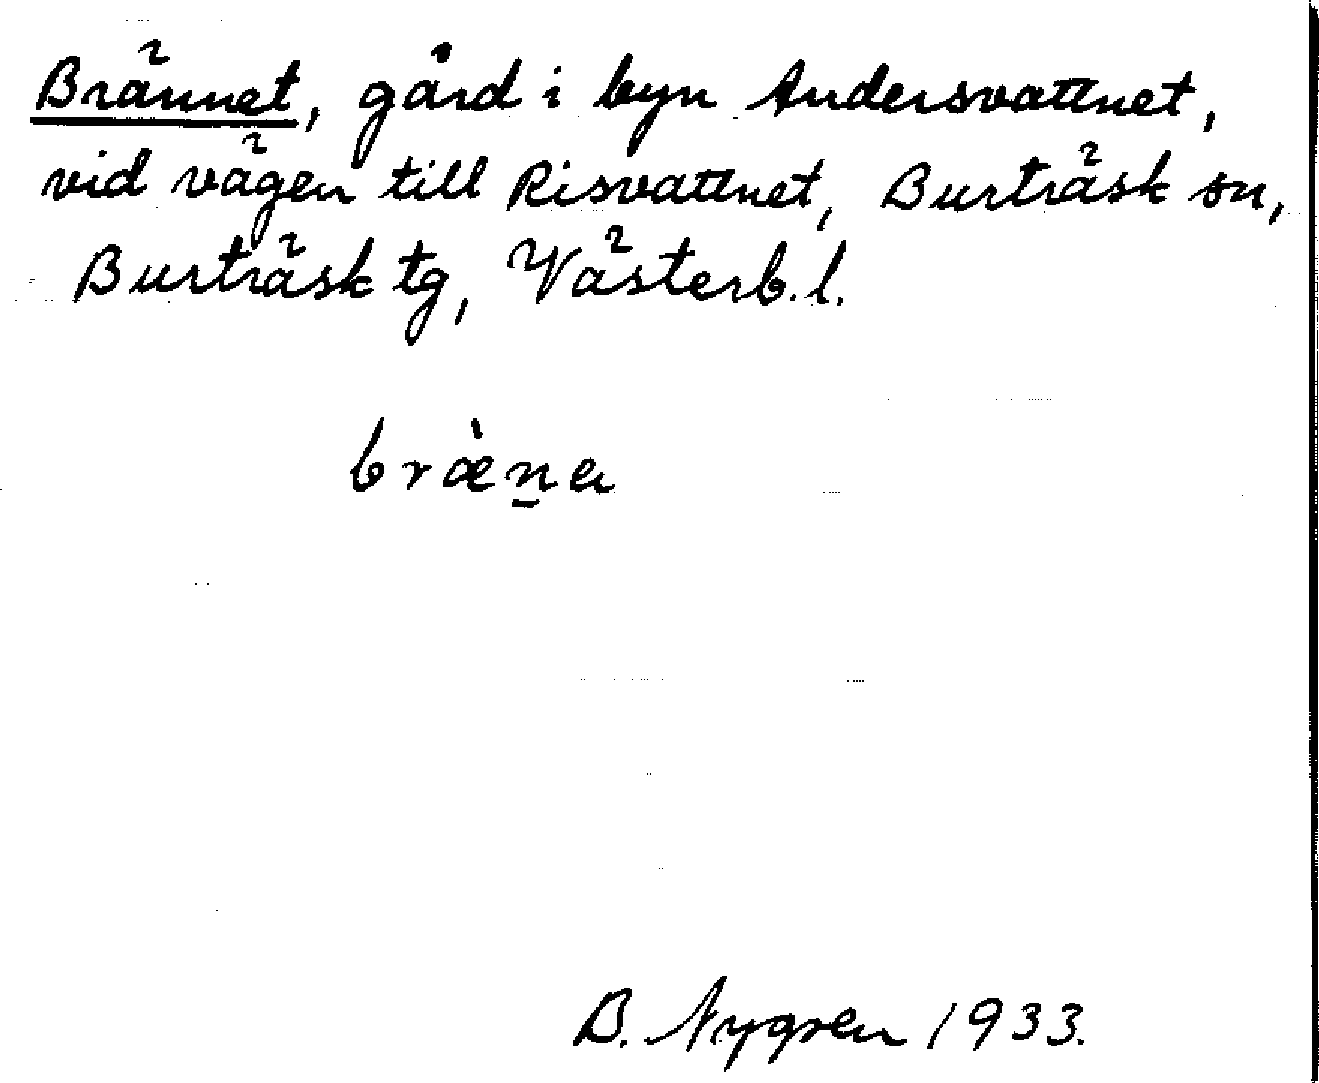 Brännet, gård i byn Andersvattnet,
vid vägen till Risvattnet, Burträsk sn,
Burträsk tg, Västerb. l.
bræ̀n̲a
B. Nygren 1933.